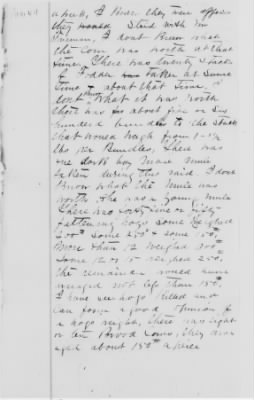 a peck, I know they were
they would Stand with Mr
I dont Know what
the Corn was worth at that
time, There was twenty stacks
of Fodder taken at Same
time & about that time, I
dont Know What it was worth
there was about five or Six
hundred bundles to the Stack
that would weigh from 1-1/2
lbs per Bundles, There was
one dark bay mare mule
taken during this raid. I dont
Know what the Mule was
worth She was a young Mule
There was or fifty
fattening hogs some weighed
200 lbs some 250 lbs & some 150 lbs
More than 12 weighed 300 lbs
Some 12 or 15 weighed 250,
the remainder would have
weighed not less than 150 lbs.
I have seen hogs killed and
can form a good opinion of
a hogs weight, There was eight
or ten Brood Sows, they aver
aged about 150 lbs a piece